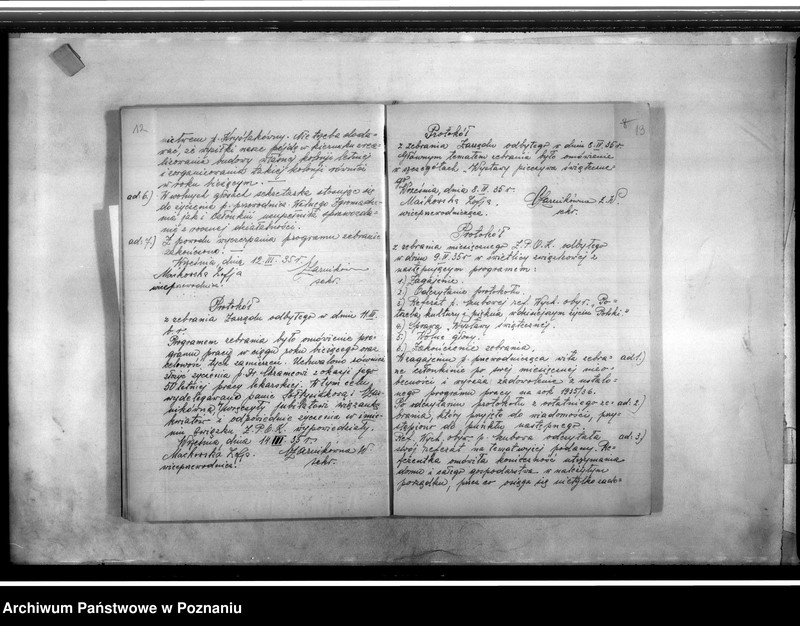 12
p. Kryślakówny. Nie trzeba doda-
wać, że wysiłki nasze pójdą w kierunku zrea-
lizowania budowy własnej kolonji letniej
i zorganizowania takiej kolonji również
w roku bieżącym.
ad. 6.) W wolnych głosach sekretarka stosując się
do życzenia p. przewodnicz. Walnego Zgromadze-
nia jak i członkiń uzupełniła sprawozda-
nie z rocznej działalności.
ad. 7.) Z powodu wyczerpania programu zebranie
zakończono.
Września, dnia 12. III. 35 r.
Maikowska Zofja
wiceprzewodnicz.
sekr.
Protokół
z zebrania Zarządu odbytego w dniu 14 III.
b. r.
Programem zebrania było omówienie pro-
gramu pracy w ciągu roku bieżącego oraz
celowość tych zamierzeń. Uchwalono również
złożyć życzenia p. Dr. z okazji jego
50 letniej pracy lekarskiej. W tym celu
wydelegowano panie Sołtysiakową i Szar-
nikówną, wręczyły Jubilatowi wiązankę
kwiatów z odpowiednie życzenia w imie-
niu Związku Z. P. O. K. wypowiedziały.
Września, dnia 14 III 35 r.
Maikowska Zofja.
wiceprzewodnicz.
Szarnikówna W
sekr.
13
Protokół
z zebrania Zarządu odbytego w dniu 8. IV. 35 r.
Głównym tematem zebrania było omówienie
w szczegółach "Wystawy pieczywa świąteczne-
go"
Września, dnia 8. IV. 35 r.
Maikowska Zofja.
wiceprzewodnicząca.
Szarnikówna
sekr.
Protokół
z zebrania miesięcznego Z. P. O. K. odbytego
w dniu 9. IV. 35 r. w świetlicy związkowej z
następującym programem:
1.) Zagajenie.
2.) Odczytanie protokołu.
3.) Referat p. Kuborej ref. Wych. obyw. "Po-
trzeba kultury i piękna w dzisiejszem życiu Polski."
4.) Sprawa Wystawy świątecznej.
5.) Wolne głosy.
6.) Zakończenie zebrania.
W zagajeniu p. przewodnicząca wita zebra- ad 1.)
ne członkinie po jej miesięcznej nieo-
becności i wyraża zadowolenie z ustalo-
nego programu pracy na rok 1935/36.
Po odczytaniu protokołu z ostatniego ze- ad. 2.)
brania, który przyjęto do wiadomości, przy-
stąpiono do punktu następnego.
Ref. Wych. obyw. p. Kubora odczytała ad. 3.)
swój referat na temat wyżej podany. Re-
ferentka omówiła konieczność utrzymania
domu i całego gospodarstwa w należytym
porządku, przez co osiąga się nietylko
Archiwum Państwowe w Poznaniu